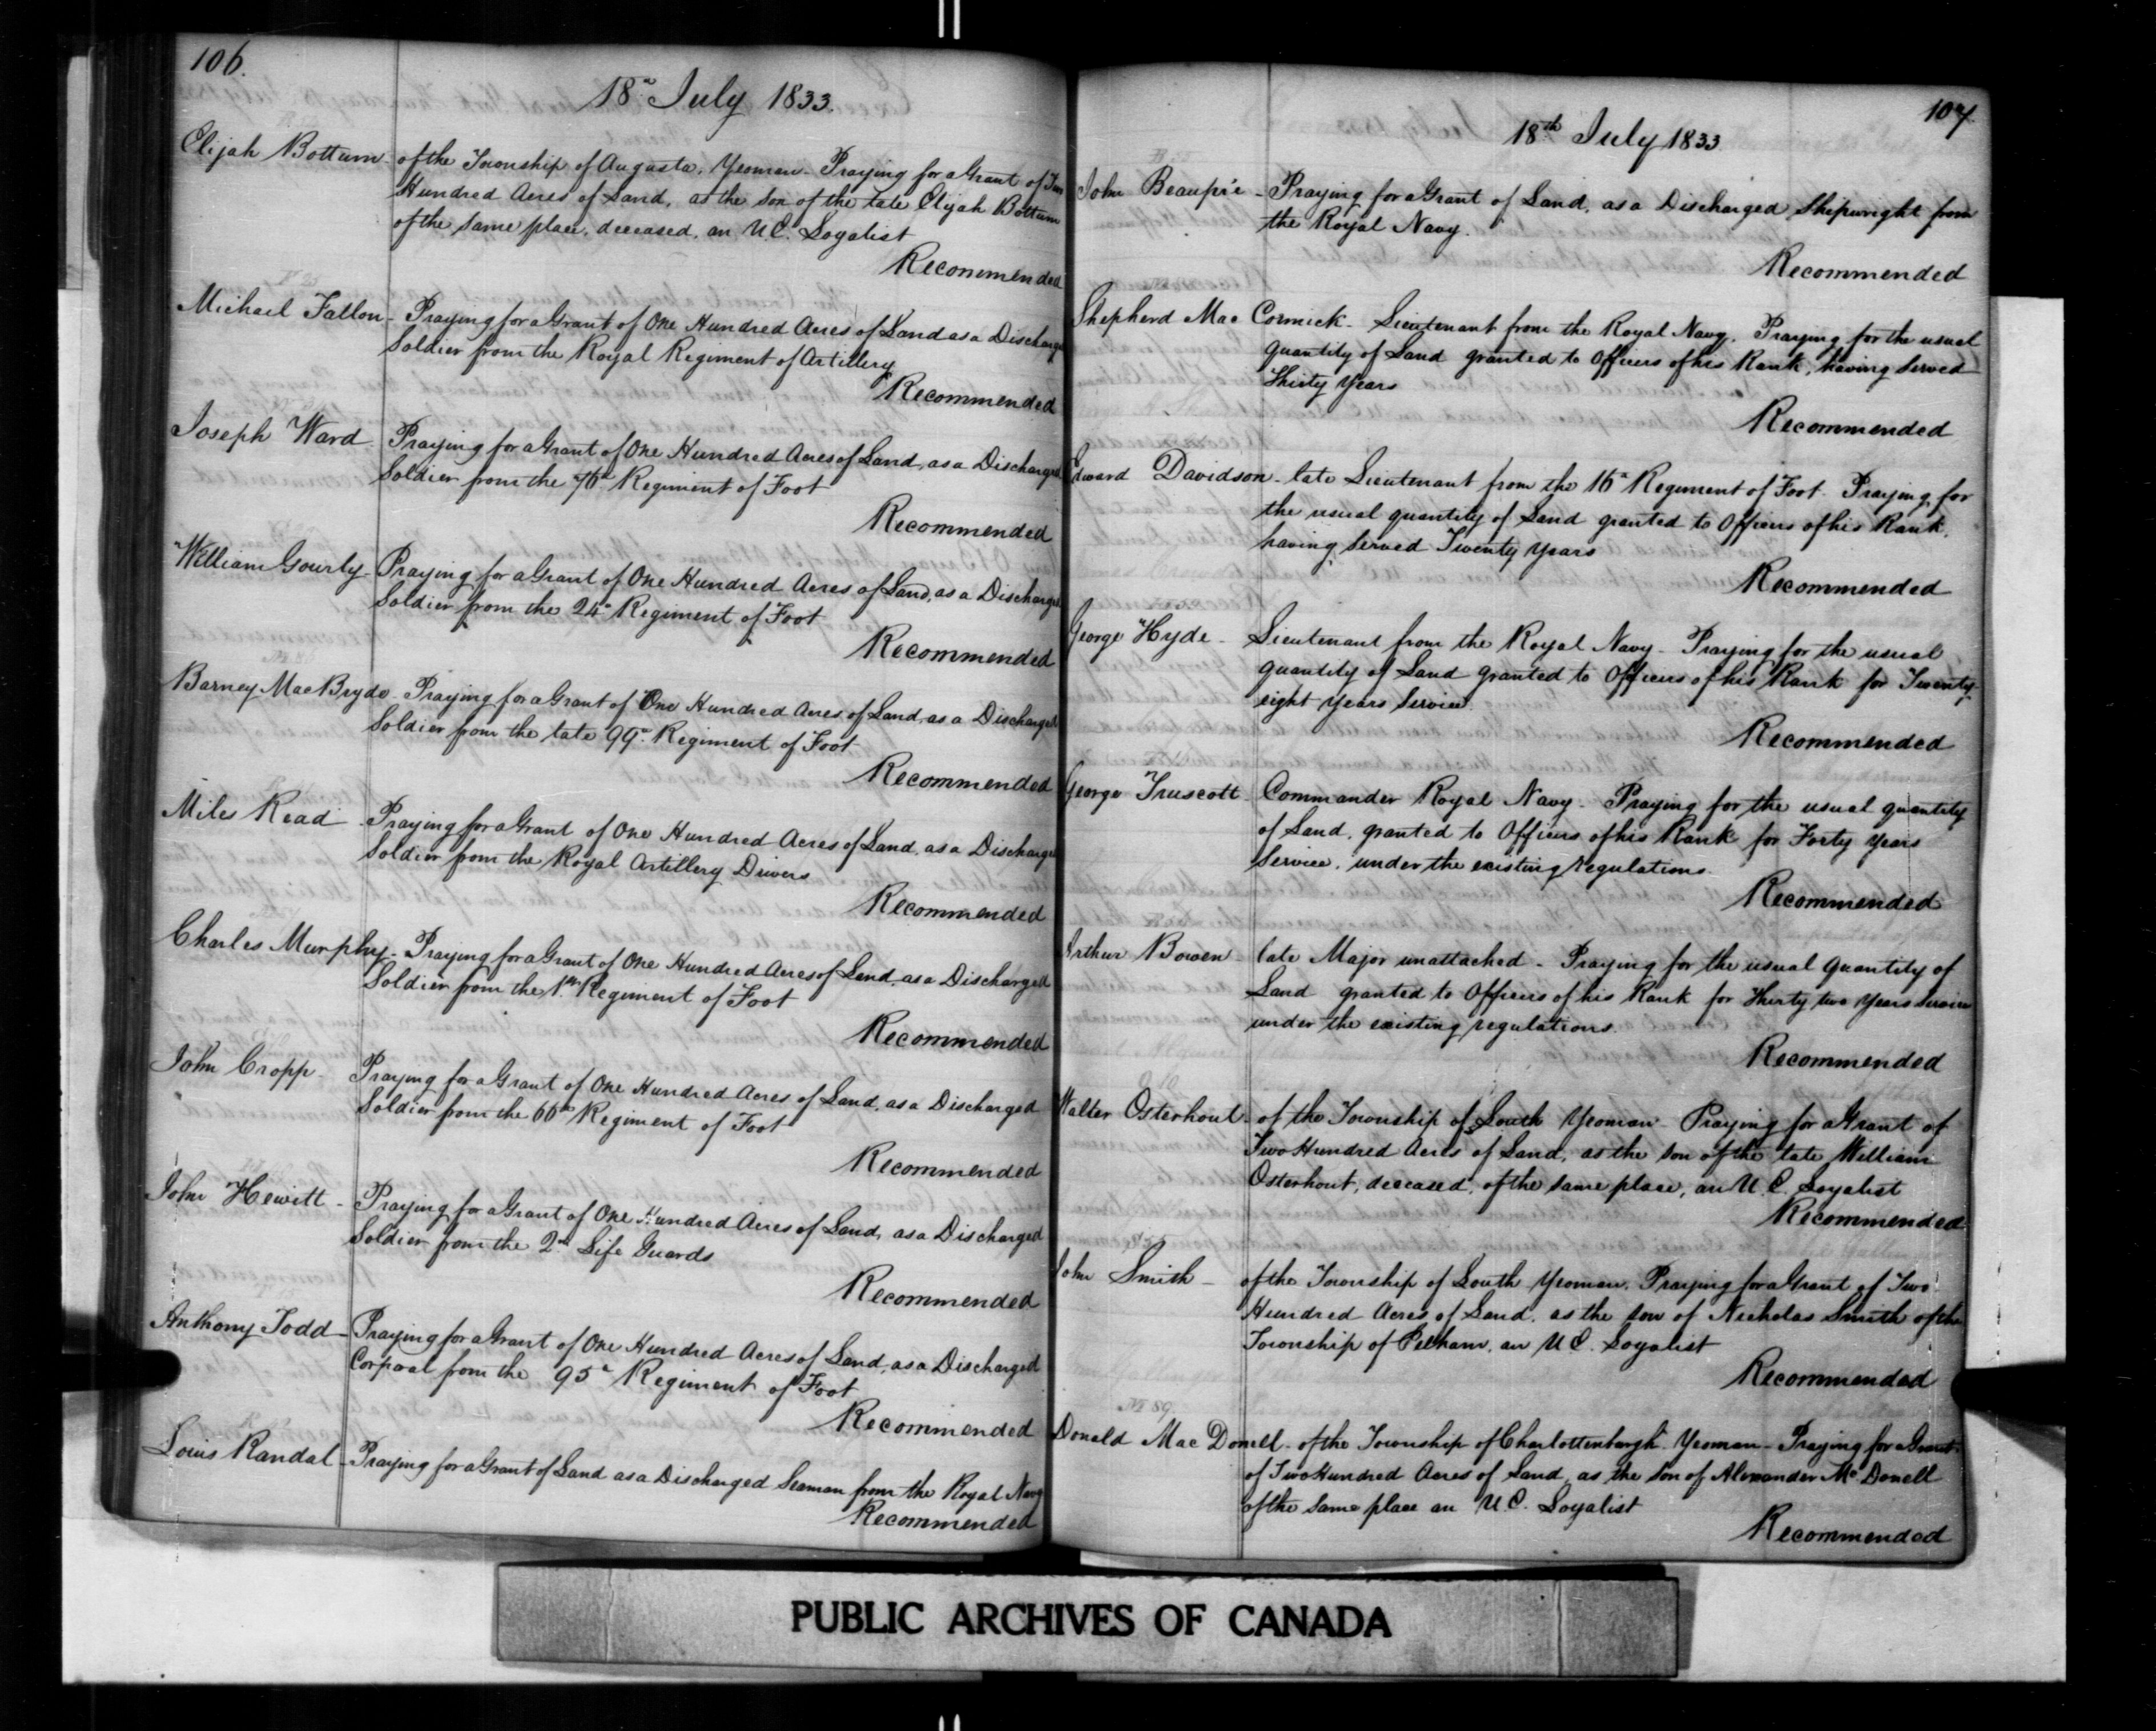 106.
18th July 1833.
Elijah Bottum - of the Township of Augusta, Yeoman - Praying for a Grant of Two
Hundred Acres of Land, as the son of the late Elijah Bottum
of the same place, deceased, an U.E. Loyalist
Recommended
Michael Fallon - Praying for a Grant of One Hundred Acres of Land as a Discharged
Soldier from the Royal Regiment of Artillery
Recommended
Joseph Ward - Praying for a Grant of One Hundred Acres of Land, as a Discharged
Soldier from the 76th Regiment of Foot
Recommended
William Gourly - Praying for a Grant of One Hundred Acres of Land, as a Discharged
Soldier from the 24th Regiment of Foot
Recommended
Barney MacBryde - Praying for a Grant of One Hundred Acres of Land, as a Discharged
Soldier from the late 99th Regiment of Foot
Recommended
Miles Read - Praying for a Grant of One Hundred Acres of Land, as a Discharged
Soldier from the Royal Artillery Drivers
Recommended
Charles Murphy - Praying for a Grant of One Hundred Acres of Land, as a Discharged
Soldier from the 1st Regiment of Foot
Recommended
John Cropp - Praying for a Grant of One Hundred Acres of Land, as a Discharged
Soldier from the 66th Regiment of Foot
Recommended
John Hewitt - Praying for a Grant of One Hundred Acres of Land, as a Discharged
Soldier from the 2nd Life Guards
Recommended
Anthony Todd - Praying for a Grant of One Hundred Acres of Land, as a Discharged
Corporal from the 95th Regiment of Foot
Recommended
Louis Randal - Praying for a Grant of Land as a Discharged Seaman from the Royal Navy
Recommended
107
18th July 1833
John Beaupré - Praying for a Grant of Land, as a Discharged Shipwright from
the Royal Navy.
Recommended
Shepherd Mac Cormick - Lieutenant from the Royal Navy. Praying for the usual
quantity of Land granted to Officers of his Rank, having served
Thirty Years
Recommended
Edward Davidson - late Lieutenant from the 16th Regiment of Foot. Praying for
the usual quantity of Land granted to Officers of his Rank,
having served Twenty Years
Recommended
George Hyde - Lieutenant from the Royal Navy - Praying for the usual
quantity of Land granted to Officers of his Rank for Twenty
eight Years Service.
Recommended
George Truscott - Commander Royal Navy - Praying for the usual quantity
of Land, granted to Officers of his Rank for Forty Years
Service, under the existing regulations.
Recommended
Arthur Bowen - late Major unattached - Praying for the usual Quantity of
Land granted to Officers of his Rank for Thirty two Years Service
under the existing regulations.
Recommended
Walter Osterhout - of the Township of Louth Yeoman - Praying for a Grant of
Two Hundred Acres of Land, as the son of the late William
Osterhout, deceased, of the same place, an U.E. Loyalist
Recommended
John Smith - of the Township of Louth Yeoman. Praying for a Grant of Two
Hundred Acres of Land, as the son of Nicholas Smith of the
Township of Pelham, an U.E. Loyalist
Recommended
Donald Mac Donell - of the Township of Charlottenburgh Yeoman - Praying for a Grant
of Two Hundred Acres of Land, as the Son of Alexander McDonell
of the same place an U.E. Loyalist
Recommended
PUBLIC ARCHIVES OF CANADA